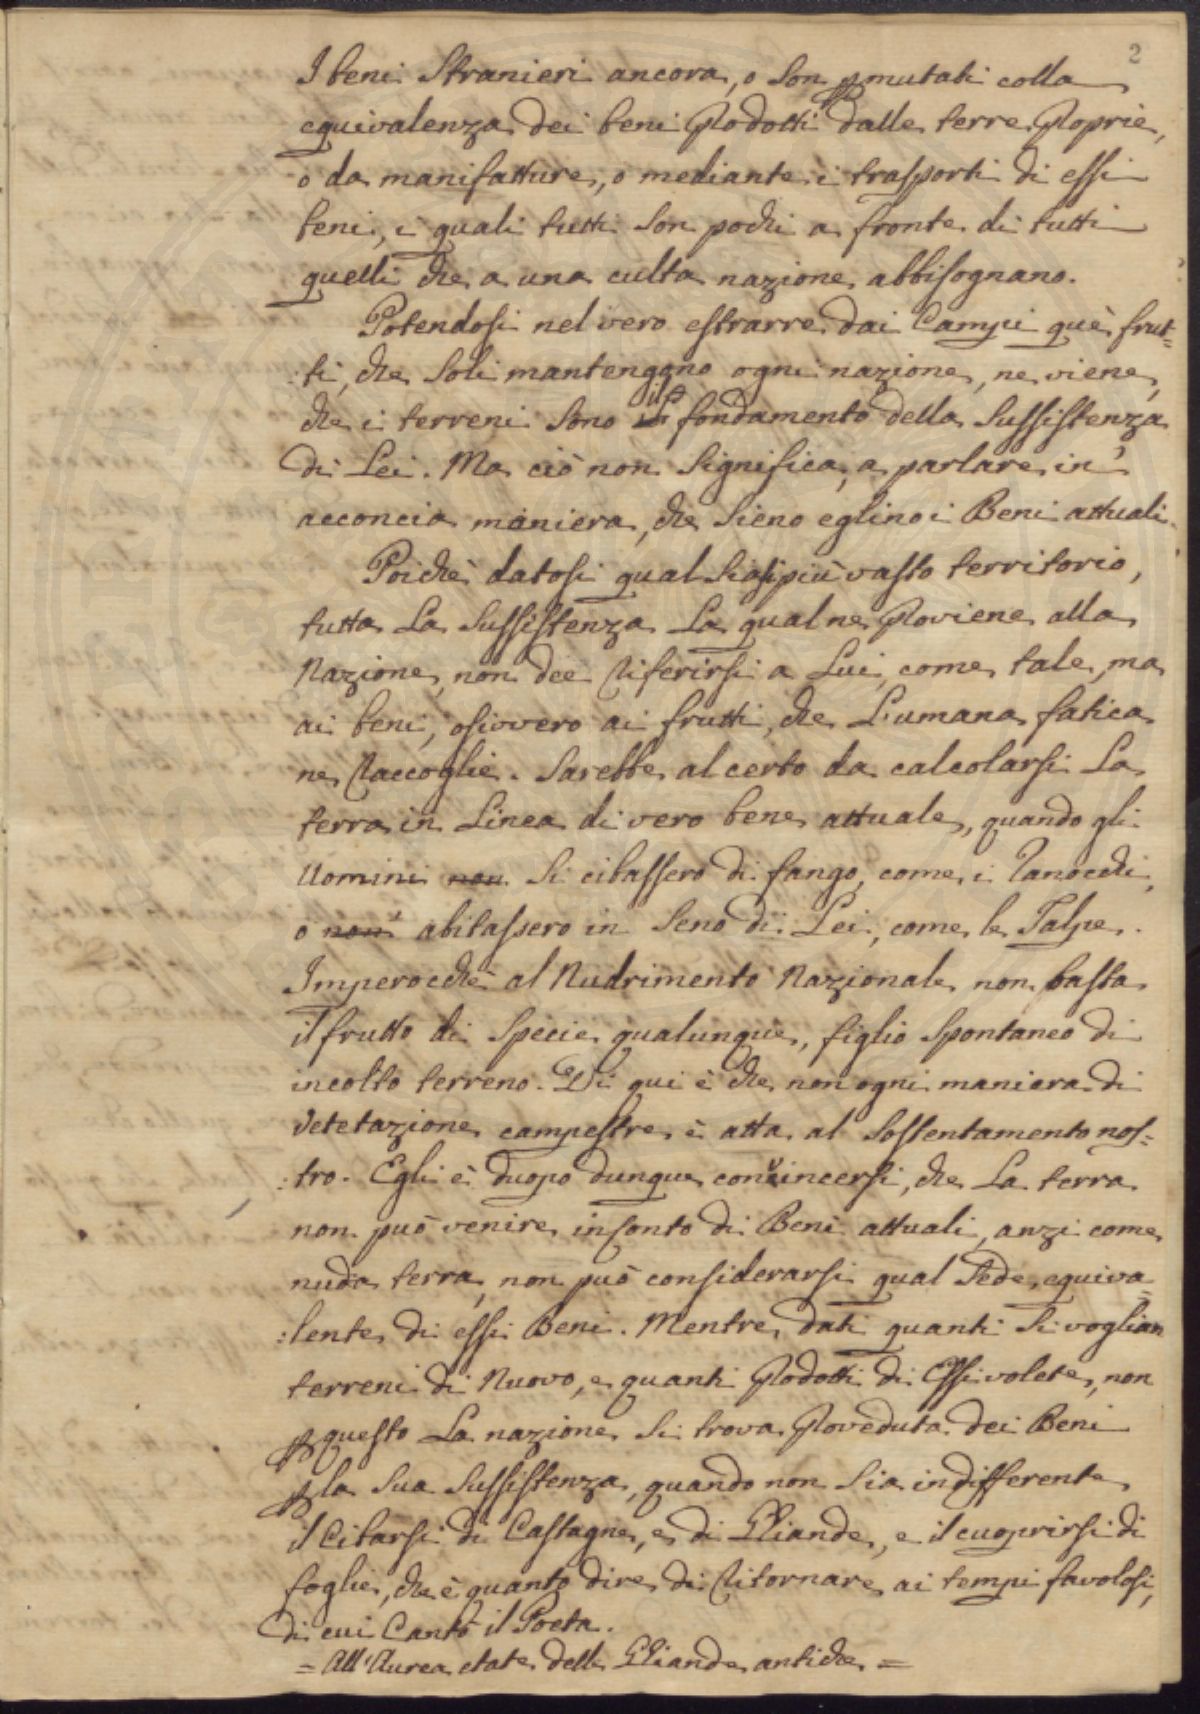 2
I beni Stranieri ancora, o Son pmutati colla
equivalenza dei beni Prodotti dalle terre Proprie,
o da manifatture, o mediante i trasporti di essi
beni, i quali tutti Son pochi a fronte di tutti
quelli che a una culta nazione abbisognano.
Potendosi nel vero estrarre dai Campi què frut=
:ti, che Soli mantengono ogni nazione, ne viene,
che i terreni Sono il fondamento della Sussistenza
di Lei. Ma ciò non Significa, a parlare in
acconcia maniera, che Sieno eglino i Beni attuali.
Poichè datosi qual Siasi più vasto territorio,
tutta La Sussistenza La qual ne Proviene alla
Nazione, non dee Riferirsi a Lui, come tale, ma
ai beni, osivvero ai frutti, che L'umana fatica
ne Raccoglie. Sarebbe al certo da calcolarsi La
terra in Linea di vero bene attuale, quando gli
Uomini non Si cibassero di fango, come i Ranocchi,
o non abitassero in Seno di Lei, come le Talpe.
Imperocchè al Nudrimento Nazionale non basta
il frutto di Specie qualunque, figlio Spontaneo di
incolto terreno. Di qui è che non ogni maniera di
Vetetazione campestre è atta al Sostentamento nos=
:tro. Egli è duopo dunque convincersi, che La terra
non può venire in Conto di Beni attuali, anzi come
nuda terra, non può considerarsi qual Sede equiva=
:lente di essi Beni. Mentre dati quanti Si voglian
terreni di Nuovo, e quanti Prodotti di Essi volete, non
p questo La nazione Si trova Proveduta dei Beni
p la Sua Sussistenza, quando non Sia indifferente
il Cibarsi di Castagne, e di Ghiande, e il cuoprirsi di
foglie, che è quanto dire di Ritornare ai tempi favolosi,
di cui Cantò il Poeta.
= All'Aurea etate delle Ghiande antiche =